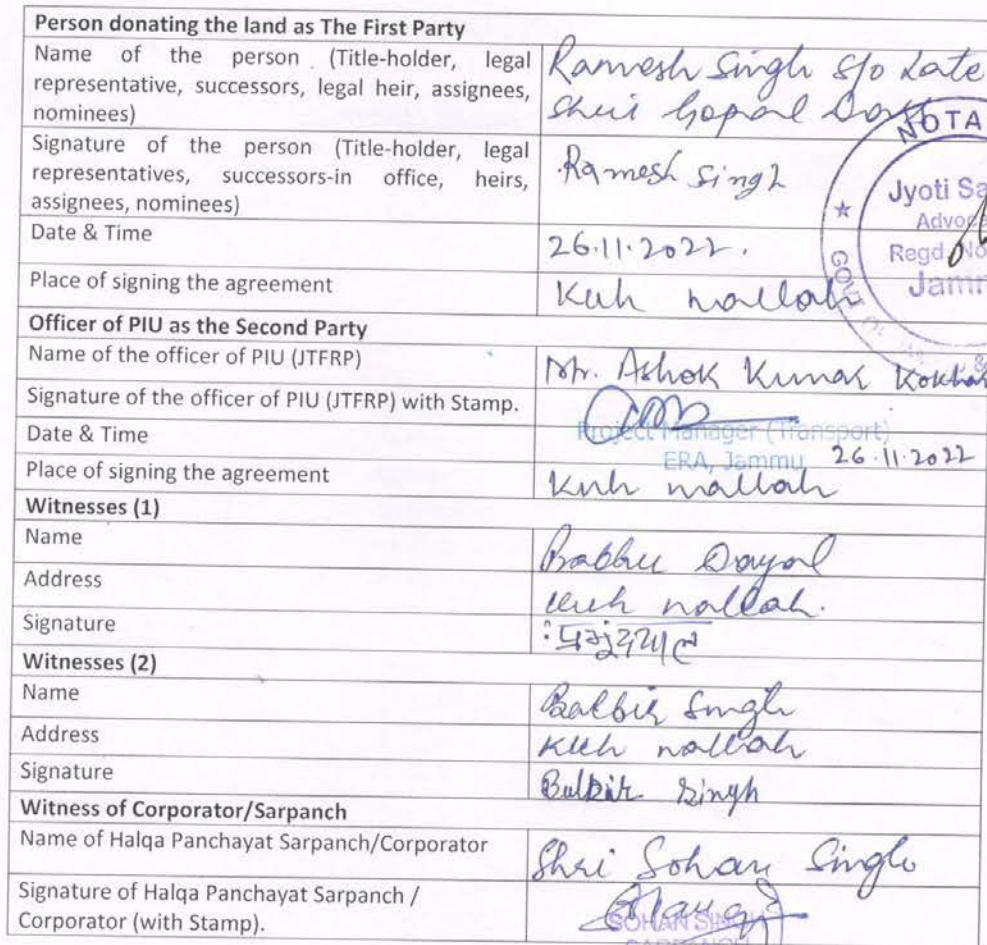 Person donating the land as The First Party
Name of the person (Title-holder, legal
representative, successors, legal heir, assignees,
nominees)
Ramesh Singh S/o Late
Shri Gopal
Signature of the person (Title-holder, legal
representatives, successors-in office, heirs,
assignees, nominees)
Ramesh Singh
NOTA
Jyoti Sa
Advoca
Regd. No
Jamm
GOVT. OF
Date & Time
26.11.2022.
Place of signing the agreement
Kuh nallah
Officer of PIU as the Second Party
Name of the officer of PIU (JTFRP)
Mr. Ashok Kumar
Signature of the officer of PIU (JTFRP) with Stamp.
Project Manager (Transport)
ERA, Jammu
Date & Time
26.11.2022
Place of signing the agreement
Kuh nallah
Witnesses (1)
Name
Prabhu Dayal
Address
Kuh nallah.
Signature
प्रभुदयाल
Witnesses (2)
Name
Balbir Singh
Address
Kuh nallah
Signature
Balbir Singh
Witness of Corporator/Sarpanch
Name of Halqa Panchayat Sarpanch/Corporator
Shri Sohan Singh
Signature of Halqa Panchayat Sarpanch /
Corporator (with Stamp).
SOHAN SINGH
SARPANCH